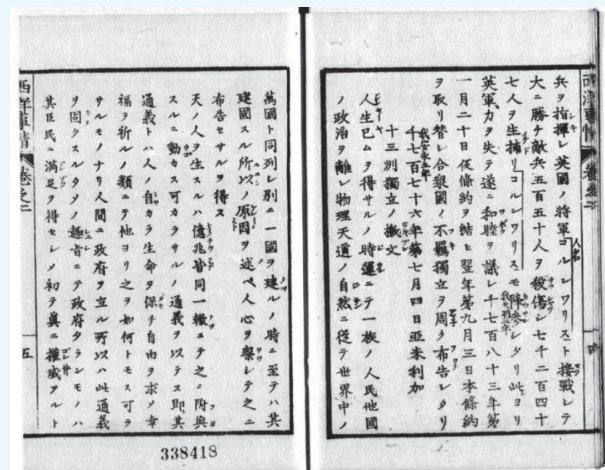 西洋事情 卷之二
兵ヲ指揮シ英國ノ將軍コルンワリスト接戰シテ
大ニ勝チ敵兵五百五十人ヲ殺傷シ七千二百四十
七人ヲ生捕リコルンワリスモ降参シタリ此ヨリ
英軍力ヲ失テ遂ニ和睦ヲ議シ千七百八十三年第
一月二十日仮條約ヲ結ヒ翌年第九月三日本條約
ヲ取リ替シ合衆國ノ不羈獨立ヲ周ク布告シタリ
千七百七十六年第七月四日亞米利加
十三州獨立ノ檄文
人生已ムヲ得サルノ時運ニテ一族ノ人民他國
ノ政治ヲ離レ物理天道ノ自然ニ從テ世界中ノ
四
萬國ト同列シ別ニ一國ヲ建ルノ時ニ至テハ其
建國スル所以ノ原因ヲ述ベ人心ヲ察シテ之ニ
布告セサルヲ得ス
天ノ人ヲ生スルハ億兆皆同一轍ニテ之ニ附與
スルニ動カス可カラサルノ通義ヲ以テス即其
通義トハ人ノ自カラ生命ヲ保チ自由ヲ求メ幸
福ヲ祈ルノ類ニテ他ヨリ之ヲ如何トモス可ラ
サルモノナリ人間ニ政府ヲ立ル所以ハ此通義
ヲ固クスルタメノ趣旨ニテ政府タランモノハ
其臣民ニ満足ヲ得セシメ初テ眞ニ權威アルト
西洋事情 卷之二
五
338418